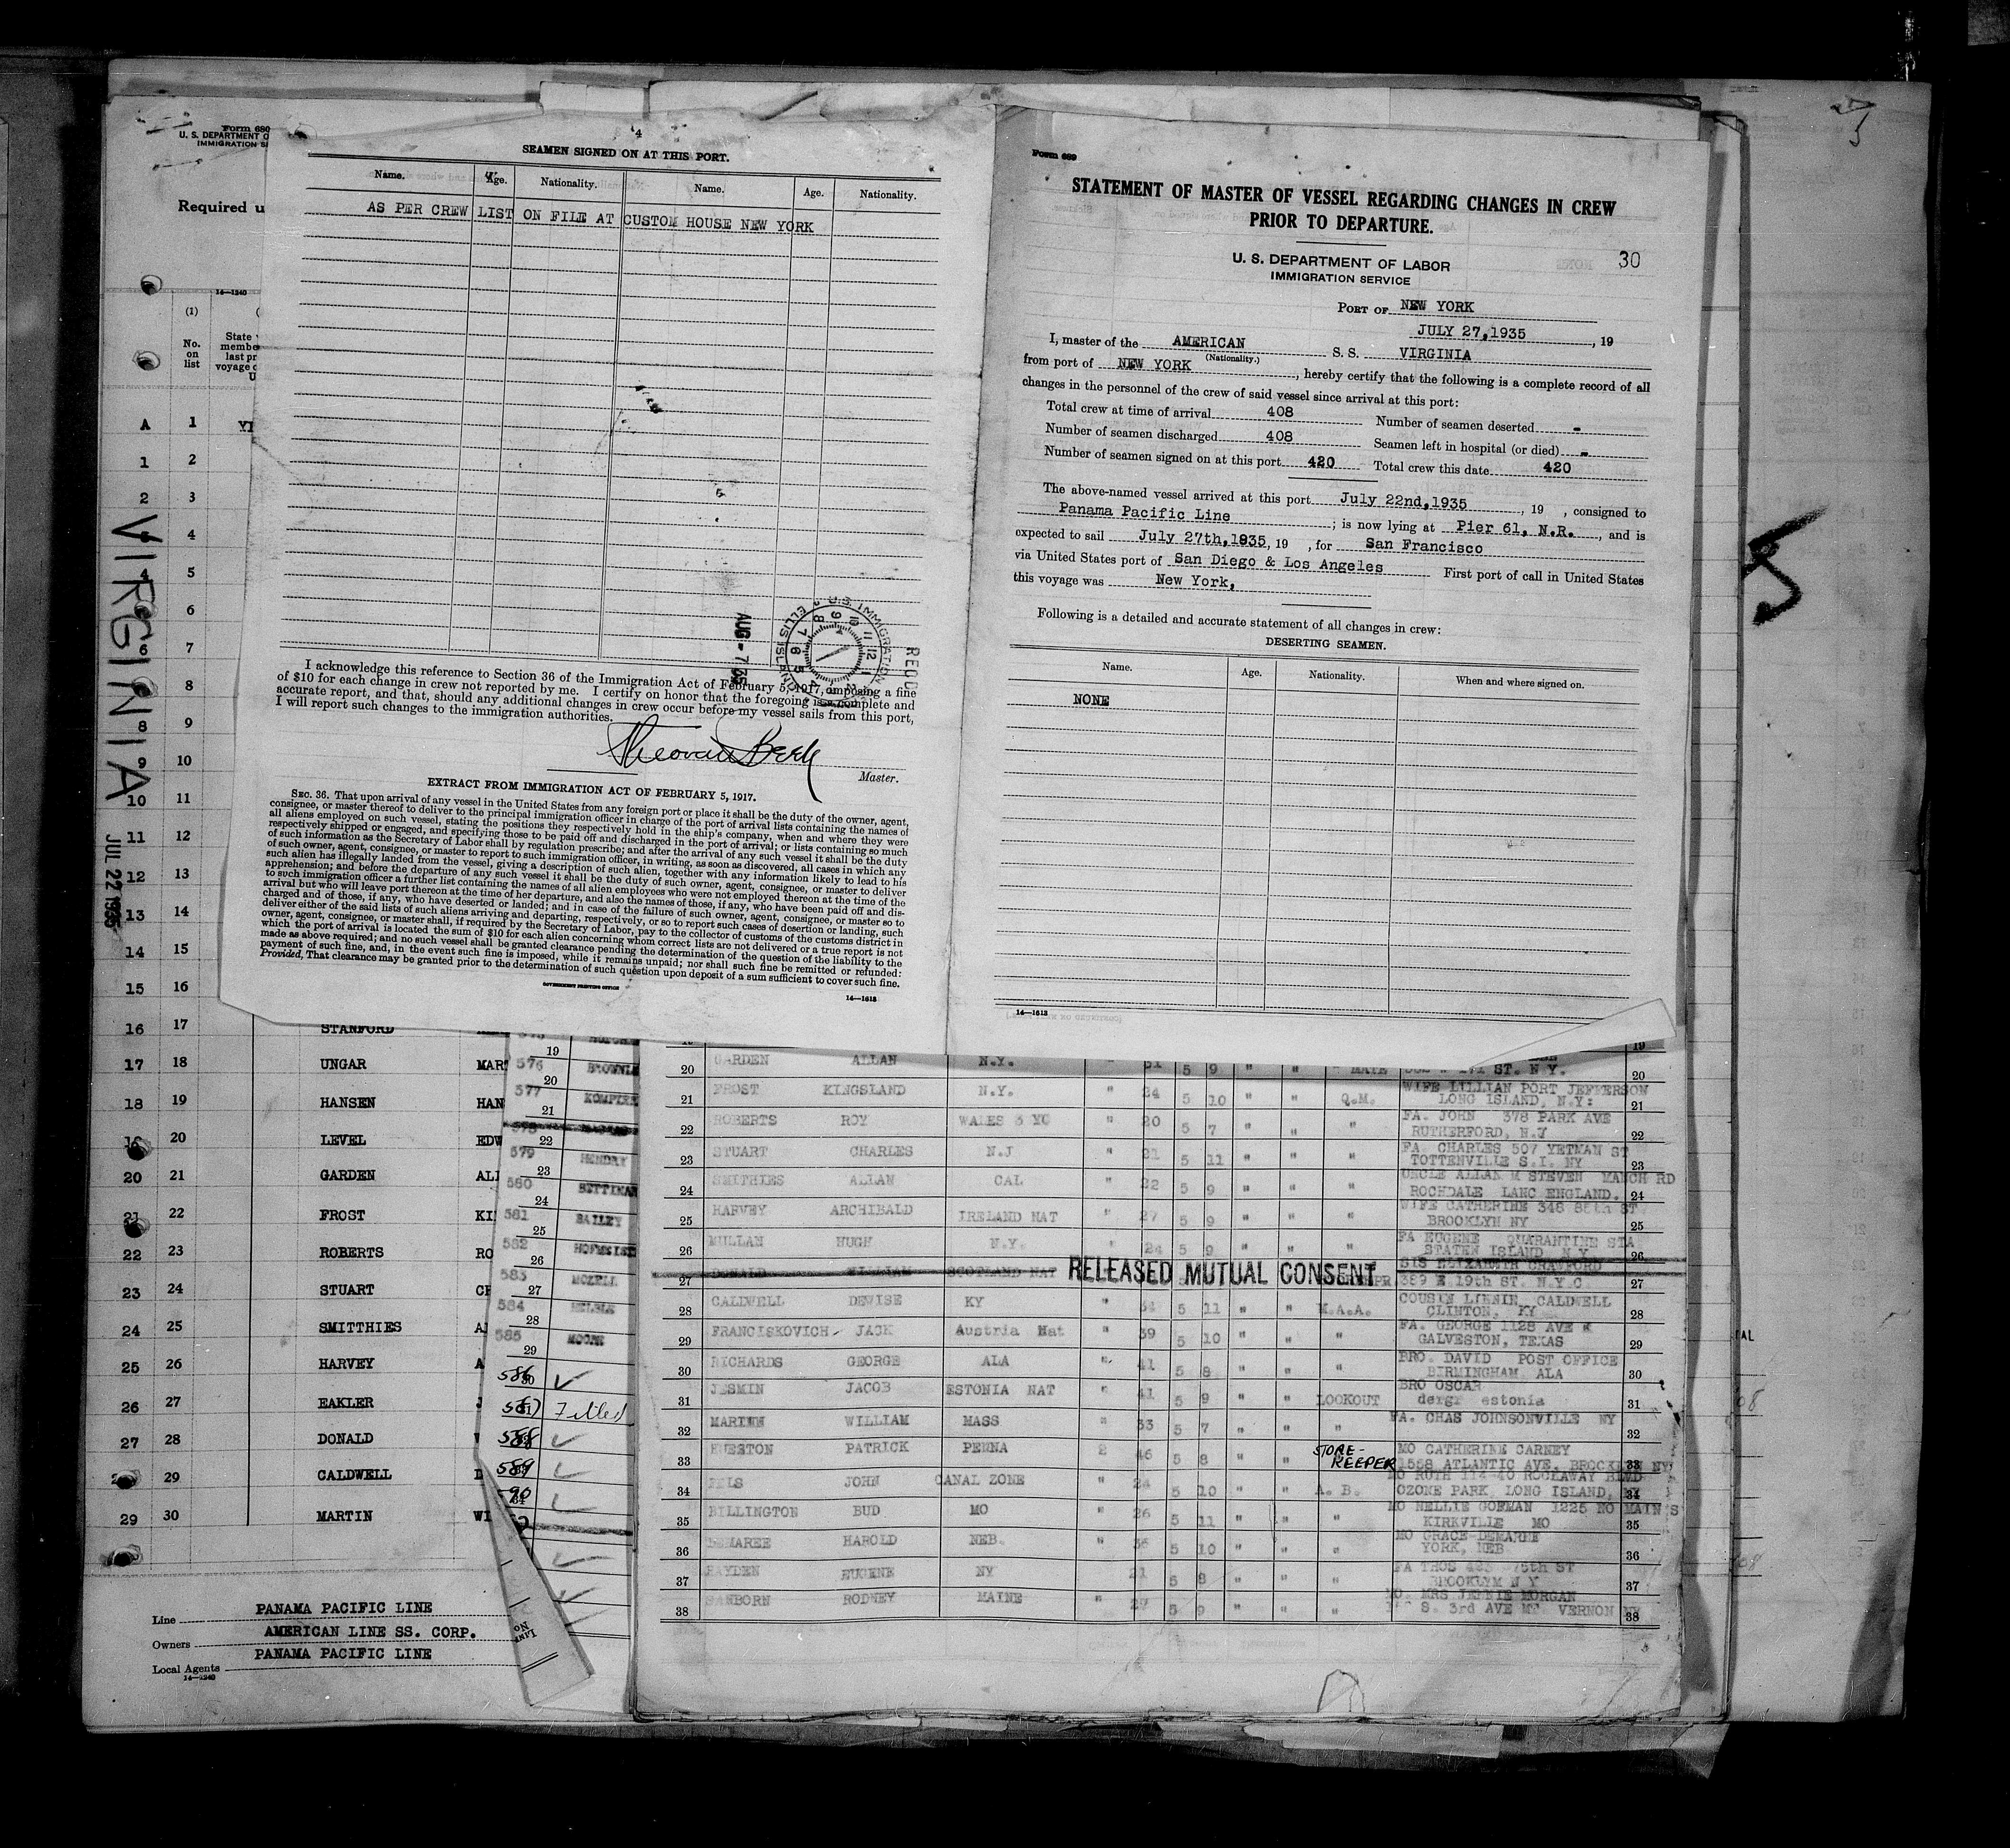 Form 680
U. S. DEPARTMENT O
IMMIGRATION S
Required u
14—1240
(1)
No.
on
list
State
membe
last pr
voyage
U
A 1 YI
1 2
2 3
4
4 5
6
6 7
8
8 9
9 10
10 11
11 12
12 13
13 14
14 15
15 16
16 17 STANFORD
17 18 UNGAR MAR
18 19 HANSEN HAN
19 20 LEVEL EDW
20 21 GARDEN ALI
21 22 FROST KI
22 23 ROBERTS RO
23 24 STUART CH
24 25 SMITTHIES A
25 26 HARVEY A
26 27 EAKLER J
27 28 DONALD
29 CALDWELL D
29 30 MARTIN WI
VIRGINIA
JUL 22 1935
Line PANAMA PACIFIC LINE
Owners AMERICAN LINE SS. CORP.
Local Agents PANAMA PACIFIC LINE
14—1240
4
SEAMEN SIGNED ON AT THIS PORT.
Name. Age. Nationality. Name. Age. Nationality.
AS PER CREW LIST ON FILE AT CUSTOM HOUSE NEW YORK
U.S. IMMIGRATION
ELLIS ISLAND
AUG - 7 35
I acknowledge this reference to Section 36 of the Immigration Act of February 5, 1917, imposing a fine
of $10 for each change in crew not reported by me. I certify on honor that the foregoing is a complete and
accurate report, and that, should any additional changes in crew occur before my vessel sails from this port,
I will report such changes to the immigration authorities.
Master.
EXTRACT FROM IMMIGRATION ACT OF FEBRUARY 5, 1917.
SEC. 36. That upon arrival of any vessel in the United States from any foreign port or place it shall be the duty of the owner, agent,
consignee, or master thereof to deliver to the principal immigration officer in charge of the port of arrival lists containing the names of
all aliens employed on such vessel, stating the positions they respectively hold in the ship's company, when and where they were
respectively shipped or engaged, and specifying those to be paid off and discharged in the port of arrival; or lists containing so much
of such information as the Secretary of Labor shall by regulation prescribe; and after the arrival of any such vessel it shall be the duty
of such owner, agent, consignee, or master to report to such immigration officer, in writing, as soon as discovered, all cases in which any
such alien has illegally landed from the vessel, giving a description of such alien, together with any information likely to lead to his
apprehension; and before the departure of any such vessel it shall be the duty of such owner, agent, consignee, or master to deliver
to such immigration officer a further list containing the names of all alien employees who were not employed thereon at the time of the
arrival but who will leave port thereon at the time of her departure, and also the names of those, if any, who have been paid off and dis-
charged and of those, if any, who have deserted or landed; and in case of the failure of such owner, agent, consignee, or master so to
deliver either of the said lists of such aliens arriving and departing, respectively, or so to report such cases of desertion or landing, such
owner, agent, consignee, or master shall, if required by the Secretary of Labor, pay to the collector of customs of the customs district in
which the port of arrival is located the sum of $10 for each alien concerning whom correct lists are not delivered or a true report is not
made as above required; and no such vessel shall be granted clearance pending the determination of the question of the liability to the
payment of such fine, and, in the event such fine is imposed, while it remains unpaid; nor shall such fine be remitted or refunded:
Provided, That clearance may be granted prior to the determination of such question upon deposit of a sum sufficient to cover such fine.
GOVERNMENT PRINTING OFFICE
14—1613
Form 689
STATEMENT OF MASTER OF VESSEL REGARDING CHANGES IN CREW
PRIOR TO DEPARTURE.
U. S. DEPARTMENT OF LABOR
IMMIGRATION SERVICE
30
PORT OF NEW YORK
JULY 27,1935, 19
I, master of the AMERICAN S. S. VIRGINIA
(Nationality.)
from port of NEW YORK, hereby certify that the following is a complete record of all
changes in the personnel of the crew of said vessel since arrival at this port:
Total crew at time of arrival 408 Number of seamen deserted -
Number of seamen discharged 408 Seamen left in hospital (or died) -
Number of seamen signed on at this port 420 Total crew this date 420
The above-named vessel arrived at this port July 22nd,1935, 19 , consigned to
Panama Pacific Line; is now lying at Pier 61, N.R., and is
expected to sail July 27th,1935, 19 , for San Francisco
via United States port of San Diego & Los Angeles First port of call in United States
this voyage was New York,
Following is a detailed and accurate statement of all changes in crew:
DESERTING SEAMEN.
Name. Age. Nationality. When and where signed on.
NONE
14—1613
19
576 20 BROWNLE
577 21
22
579 23 HENDRY
580 24
581 25 BAILEY
582 26
583 27
584 28
585 29 MOORE
586 ✓
587 Filled
588 ✓
589 ✓
590 ✓
20 GARDEN ALLAN N.Y. " 31 5 9 " " " MATE ST. N Y. 20
21 FROST KINGSLAND N.Y. " 24 5 10 " " Q.M. WIFE LILLIAN PORT JEFFERSON LONG ISLAND, N.Y: 21
22 ROBERTS ROY WALES " 20 5 7 " " " FA. JOHN 378 PARK AVE RUTHERFORD, N.J 22
23 STUART CHARLES N.J " 21 5 11 " " " FA CHARLES 507 YETMAN ST TOTTENVILLE S.I. NY 23
24 SMITHIES ALLAN CAL " 22 5 9 " " " UNCLE ALLAN M STEVEN MANCH RD ROCHDALE LANC ENGLAND. 24
25 HARVEY ARCHIBALD IRELAND NAT " 27 5 9 " " " WIFE CATHERINE 348 85th ST BROOKLYN NY 25
26 MULLAN HUGH N.Y. " 24 5 9 " " " FA EUGENE QUARANTINE STA STATEN ISLAND N.Y 26
27 DONALD WILLIAM SCOTLAND NAT RELEASED MUTUAL CONSENT SIS ELIZABETH CRAWFORD 389 E 19th ST. N.Y.C 27
28 CALDWELL DEWISE KY " 34 5 11 " " M.A.A. COUSIN LINNIN CALDWELL CLINTON, KY 28
29 FRANCISKOVICH JACK Austria Nat " 39 5 10 " " " FA. GEORGE 1128 AVE K GALVESTON, TEXAS 29
30 RICHARDS GEORGE ALA " 41 5 8 " " " BRO. DAVID POST OFFICE BIRMINGHAM ALA 30
31 JESMIN JACOB ESTONIA NAT " 41 5 9 " " LOOKOUT BRO OSCAR dergr estonia 31
32 MARTIN WILLIAM MASS " 33 5 7 " " " FA. CHAS JOHNSONVILLE NY 32
33 HUESTON PATRICK PENNA 2 46 5 8 " " STORE-KEEPER MO CATHERINE CARNEY 1558 ATLANTIC AVE, BROOKLYN NY 33
34 JOHN CANAL ZONE " 24 5 10 " " A. B. MO RUTH 114-40 ROCKAWAY BLVD OZONE PARK LONG ISLAND, 34
35 BILLINGTON BUD MO " 26 5 11 " " " MO NELLIE GOFMAN 1225 NO MAIN S KIRKVILLE MO 35
36 DEMAREE HAROLD NEB. " 36 5 10 " " " MO GRACE DEMAREE YORK, NEB 36
37 HAYDEN EUGENE NY 21 5 8 " " " FA THOS 423 75th ST BROOKLYN N Y 37
38 SANBORN RODNEY MAINE " 29 5 9 " " " MO. MRS JENNIE MORGAN S. 3rd AVE MT VERNON NY 38